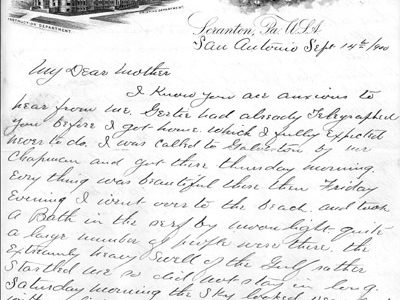 INSTRUCTION DEPARTMENT
DEPARTMENT.
Scranton, Pa. U.S.A.
San Antonio Sept 14th/1900
My Dear Mother
I Know you are anxious to
hear from me. had already Telegraphed
you before I got home. which I fully expected
to do. I was called to Galveston by Mr
Chapman and got there thursday morning.
Evry thing was beautiful there then Friday
Evening I went over to the beach and took
a Bath in the serf by moon light quite
a large number of people were there. the
Extremely heavy swell of the Gulf rather
Startled me so did not stay in long.
Saturday morning the Sky looked